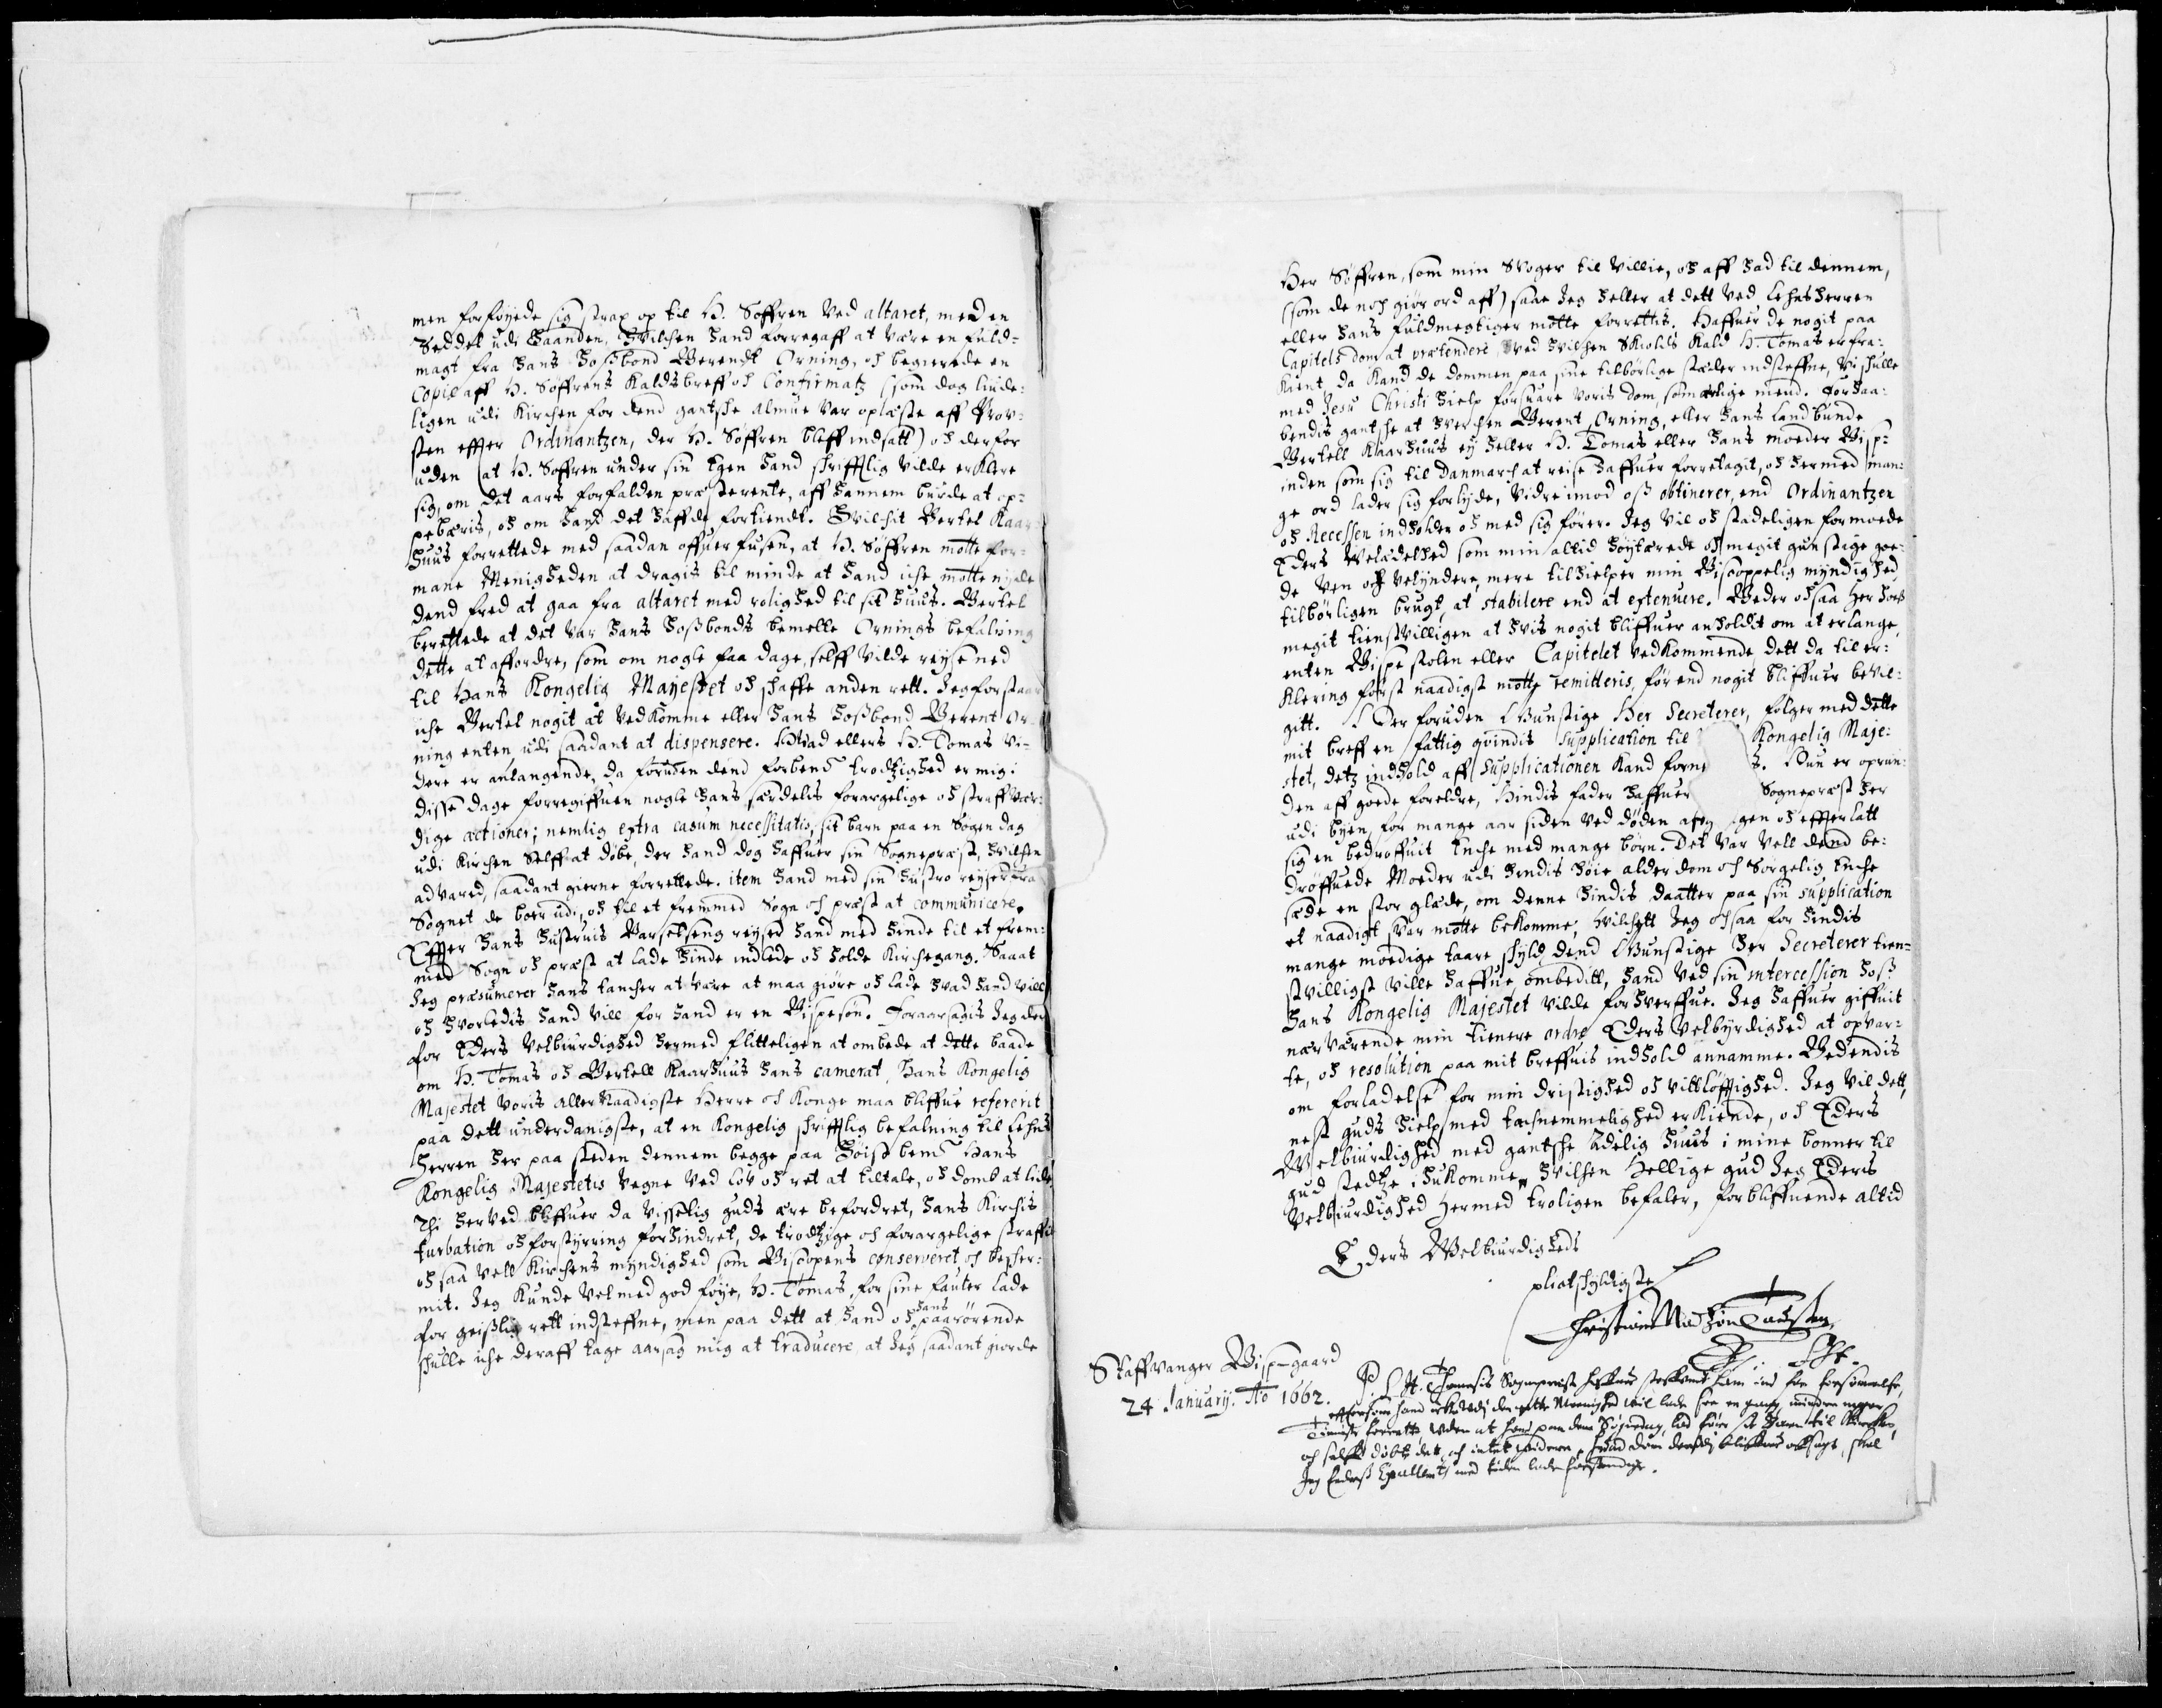 men forføyede sig strax op til H. Søffren ved altaret, med en
Seddel udi haanden, hvilchen hand forregaff at være en fuld-
magt fra hans hosbond Berendt Orning, och begierede en
Copie aff H. Søffrens Kaldsbreff och Confirmatz (som dog liude-
ligen udi Kirchen for dend gantsche almue var oplæste aff Prov-
sten effter Ordinantzen, der H. Søffren bleff indsatt) och derfor
uden at H. Søffren under sin Egen hand schrifftlig vilde erklere
sig, om det aars forfalden præsterente, aff hannem burde at op-
pebæris, och om hand det haffde fortiendt. Hvilchit Bertel Kaar-
huus forrettede med saadan offuerfusen, at H. Søffren motte for-
mane Menigheden at dragis til minde at hand iche motte nyde
dend fred at gaa fra altaret med rolighed til sit huus. Bertel
berettede at det var hans hosbonds bemelte Ornings befalning
dette at affordre, som om nogle faa dage, selff vilde reyse ned
til Hans Kongelig Mayestet och schaffe anden rett. Jeg forstaar
iche Bertel nogit at vedkomme eller hans hosbond Berent Or-
ning enten udi saadant at dispensere. Hvad ellers H. Tomas vi-
dere er anlangende, da foruden dend forbemte trodtzighed er mig i
disse dage forregiffuen nogle hans særdelis forargelige och straffvær-
dige actioner; nemlig extra casum necessitatis, sit barn paa en Søgen dag
udi Kirchen Selff at døbe, der hand dog haffuer sin Sognepræst, hvilchen
advared, saadant gierne forrettede. item hand med sin hustro reyser fra
Sognet de boer udi, och til et fremmed Sogn och præst at communicere.
Effter hans hustruis Barselseng reysed hand med hinde til et frem-
med Sogn och præst at lade hinde indlede och holde Kirchegang. Saaat
Jeg præsumerer hans tancher at være at maa giøre och lade hvad hand vill
och hvorledis hand vill for hand er en Bispesøn. Foraarsagis Jeg der
for Eders Velbiurdighed hermed flitteligen at ombede at dette baade
om H. Tomas och Bertell Kaarhuus hans camerat, Hans Kongelig
Majestet voris aller Naadigste Herre och Konge maa bliffue refererit
paa dett underdanigste, at en Kongelig schrifftlig befalning til Lehns
Herren her paa steden dennem begge paa Høist bemte Hans
Kongelig Majestetis vegne ved lov och ret at tiltale, och domb at lide
Thi herved bliffuer da visselig guds ære befordret, hans Kirchis
turbation och forstyrring forhindret, de trodtzige och forargelige straffit
och saa vell Kirchens myndighed som Biscopens conserveret och bescher-
mit. Jeg Kunde vel med god føye, H. Tomas, for sine fauter lade
for geistlig rett indsteffne, men paa dett at hand och hans paarørende
schulle iche deraff tage aarsag mig at traducere, at Jeg saadant giorde
Her Søffren, som min Svoger til villie, och aff had til dennem,
(som de noch giør ord aff) saae Jeg heller at dett ved Lehnsherren
eller hans fuldmegtiger motte forrettis. Haffuer de nogit paa
Capitels dom at prætendere, ved hvilchen Skiolds Kald H. Tomas er fra-
kient, da Kand de dommen paa sine tilbørlige stæder indsteffne, Vi schulle
med Jesu Christi hielp forsuare voris dom, som ærlige mend. Forhaa-
bendis gantsche at hverchen Berent Orning, eller hans landbunde
Bertell Kaarhuus ey heller H. Tomas eller hans moeder Bisp-
inden som sig til Danmarch at reise haffuer forretagit, och hermed man-
ge ord lader sig forlyde, vidre imod oss obtinerer, end Ordinantzen
och Recessen indholder och med sig fører. Jeg vil och stadeligen formoede
Eders Velædelhed som min altid høytærede och megit gunstige goe-
de Ven och velynder, mere tilhielper min Biscoppelig myndighed
tilbørligen brugt, at stabilere end at extenuere. Beder och saa Her hoes
megit tienstvilligen at hvis nogit bliffuer anholdt om at erlange,
enten Bispestolen eller Capitelet vedkommende dett da til er-
klering først naadigst motte remitteris, før end nogit bliffuer bevil-
gitt. Der foruden Gunstige Her Secreterer, følger med dette
mit breff en fattig qvindis Supplication til Kongelig Maje-
stet, detz indhold aff Supplicationen Kand forne s. Hun er oprun-
den aff goede foreldre, Hindis fader haffuer Sognepræst her
udi byen, for mange aar siden ved døden af gen och effterlatt
sig en bedrøffuit Enche med mange børn. Det var vell dend be-
drøffuede Moeder udi hendis høie alderdom och Sorgelig Enche
sæde en stor glæde, om denne hindis daatter paa sin supplication
et naadigt svar motte bekomme; hvilchett Jeg och saa for hindis
mange moedige taare schyld dend Gunstige Her Secreterer tien-
stvilligst ville haffue ombeditt, hand ved sin intercession hoss
Hans Kongelig Majestet vilde forhverffue. Jeg haffuer giffuit
nærværende min tienere ordre Eders Velbyrdighed at opvar-
te, och resolution paa mit breffuis indhold annamme. Bedendis
om forladelse for min dristighed och vittløfftighed. Jeg vil dett,
nest guds hielp med tachnemmelighed erkiende, och Eders
Velbiurdighed med gantsche Adelig huus i mine bønner til
gud stedtze ihukomme, hvilchen Hellige gud Jeg Eders
Velbiurdighed Hermed troligen befaler, forbliffuende altid
Eders Welbiurdigheds
pliatschyldigste
Christian Madzøn Tausan
Staffvanger Bispgaard
24 January. Ao 1662.
P. S. H. Thomasis Sognepræst
effterson hand
tieniste forrette, uden at hand paa den Søgendag, lod føre sit Barn til Kirchen,
och selff døbte det, och intet videre. Hvad dom derudi bliffuer affsagt, skal
Jeg Eders med tiden lade forstendige.